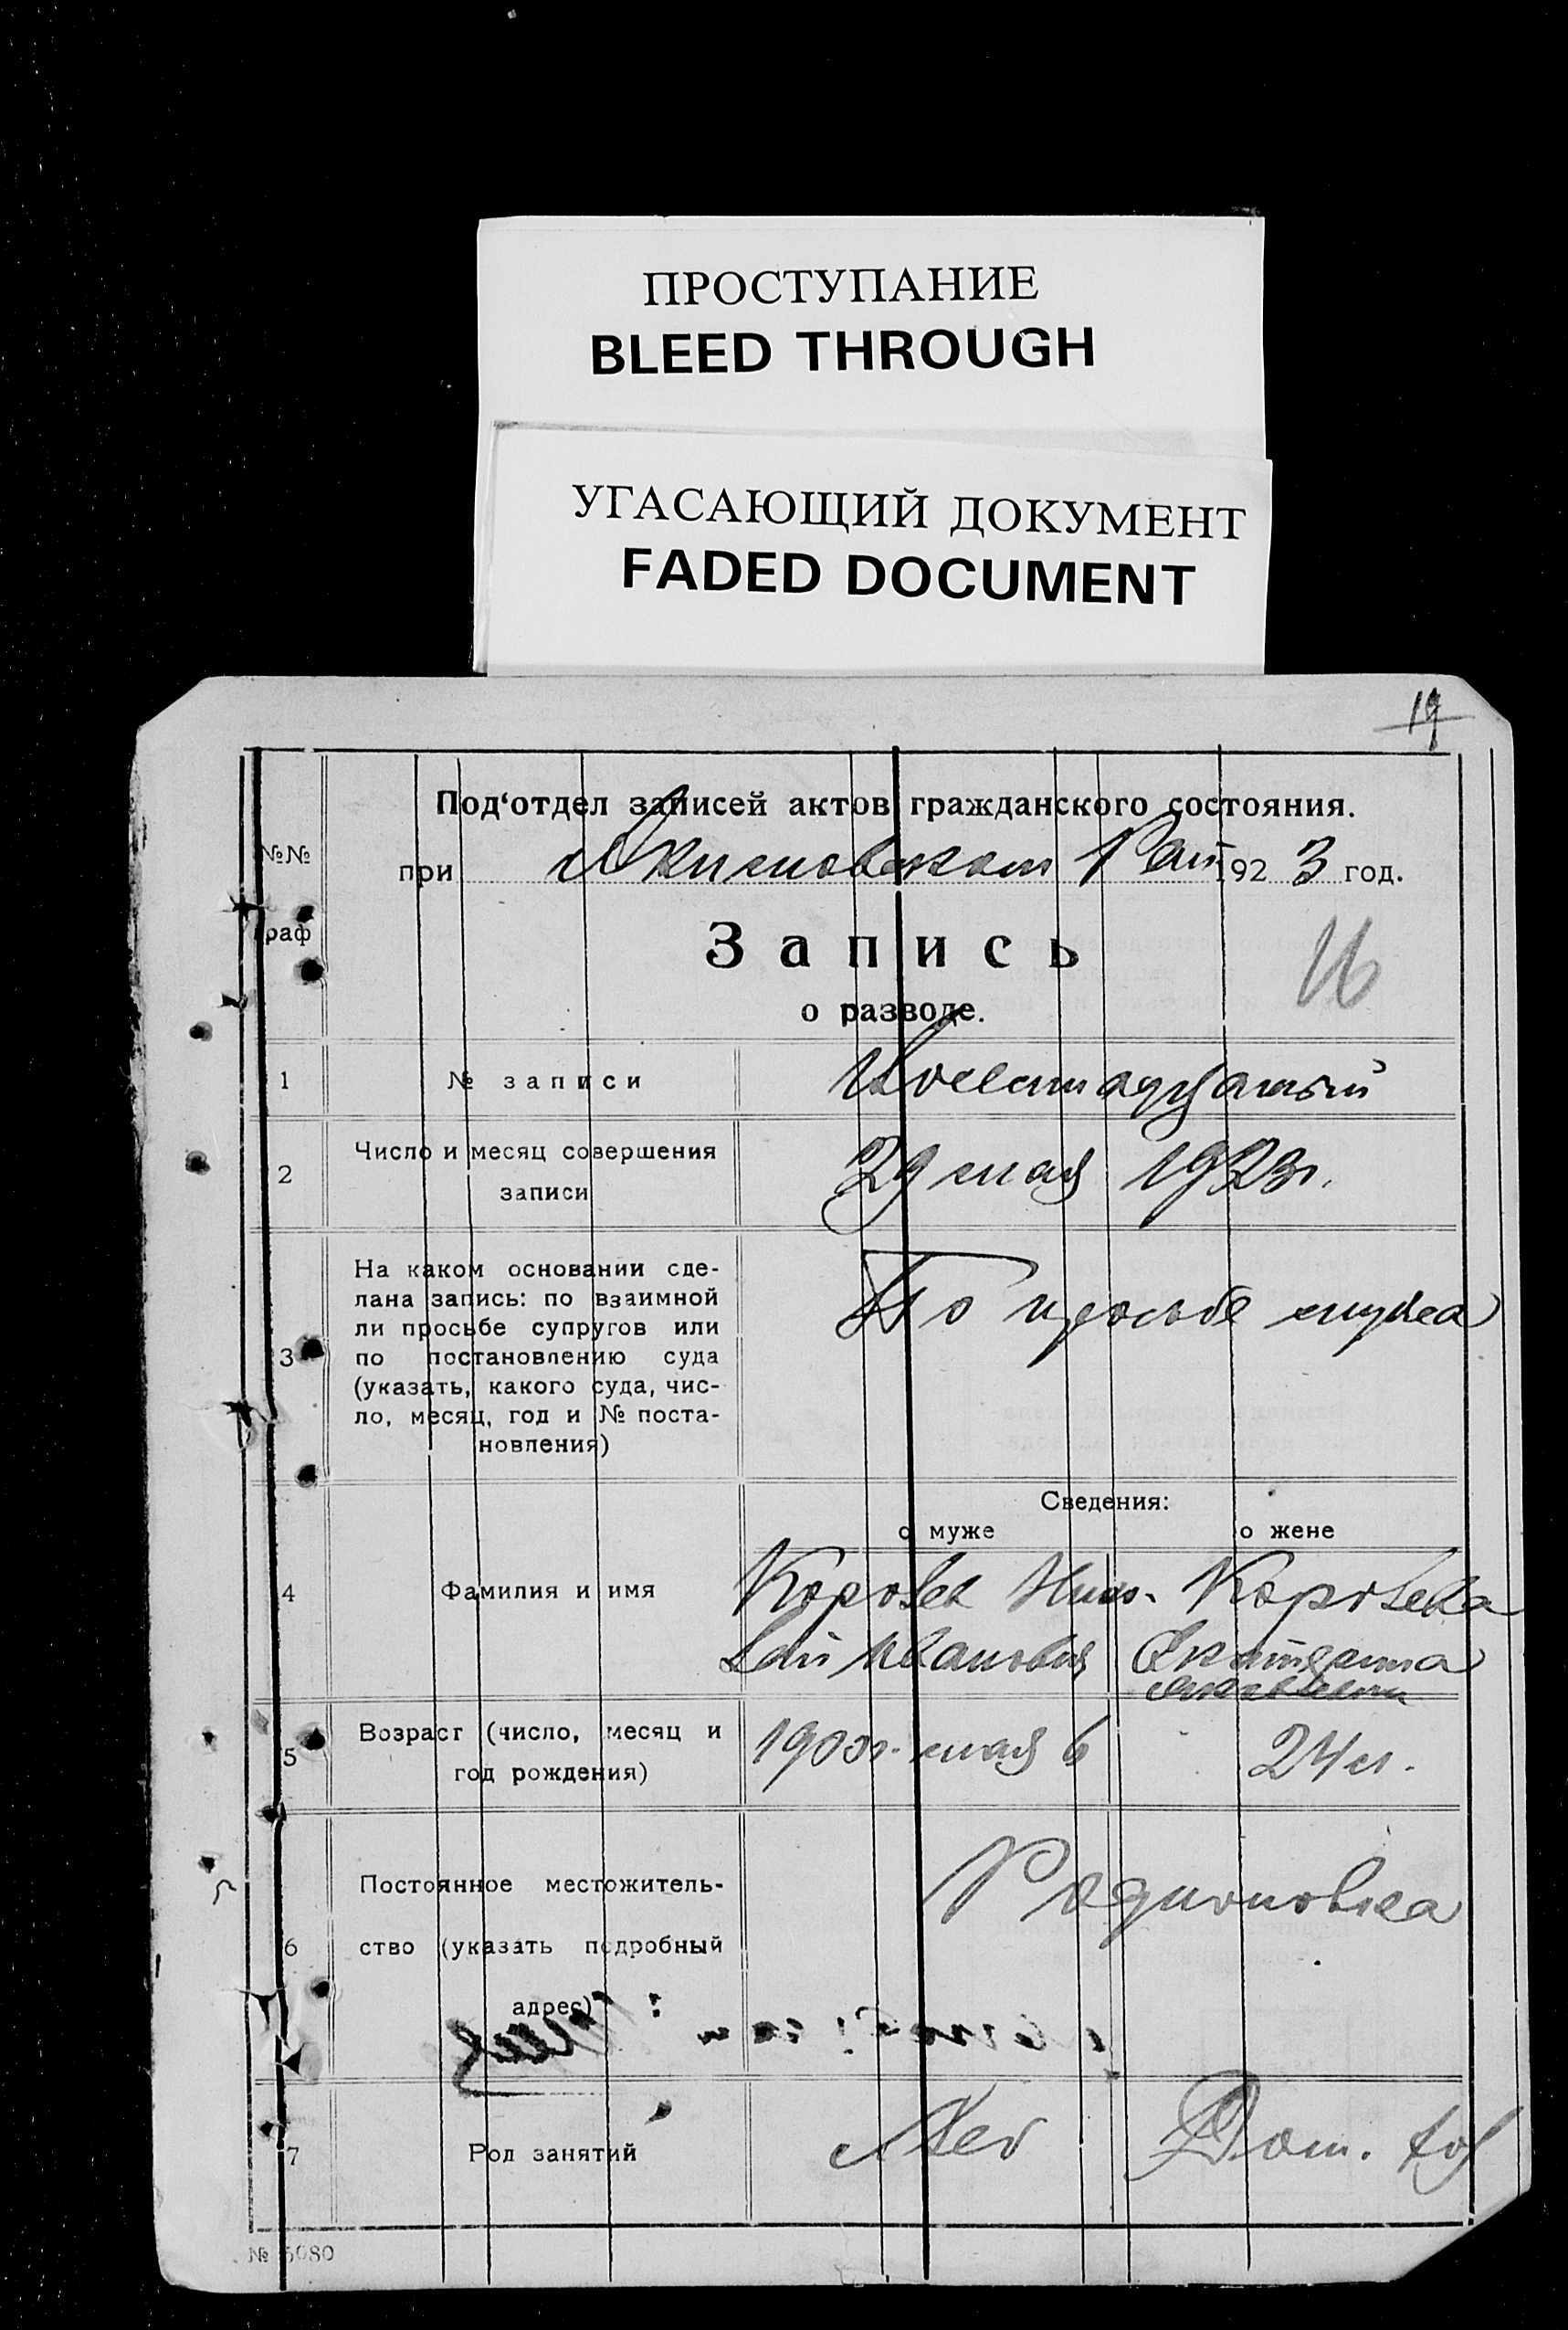 ПРОСТУПАНИЕ
BLEED THROUGH
УГАСАЮЩИЙ ДОКУМЕНТ
FADED DOCUMENT
19
Под‘отдел записей актов гражданского состояния.
№№
при Акимовском Рай 192 3 год.
граф
Запись
16
о разводе.
1 № записи
2 Число и месяц совершения 29 мая 1923г.
записи
На каком основании сде-
лана запись: по взаимной По просьбе мужа
ли просьбе супругов или
3 по постановлению суда
(указать, какого суда, чис-
ло, месяц, год и № поста-
новления)
Сведения:
о муже о жене
4 Фамилия и имя Коровев Нико- Коровева
лай Иванович Екатерина
5 Возраст (число, месяц и 1900г. мая 6 24 л.
год рождения)
Постоянное местожитель- Родионовка
6 ство (указать подробный
адрес)
7 Род занятий Дом. хоз
№ 5080